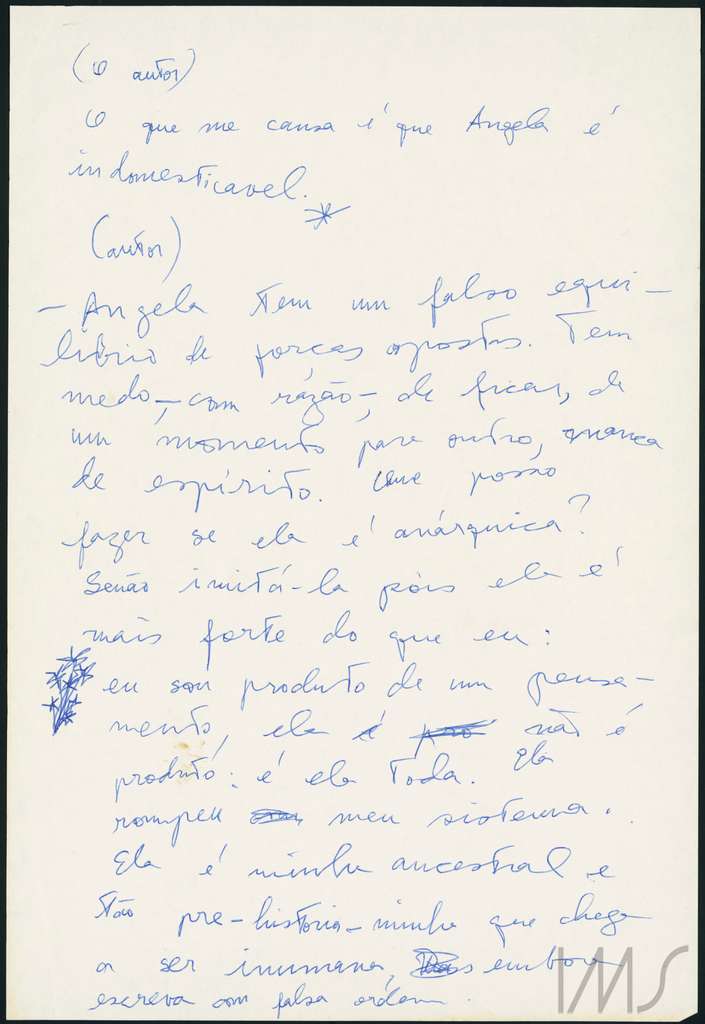 (O autor)
O que me causa é que Angela é
indomesticavel.
(autor)
— Angela tem um falso equi-
líbrio de forças opostas. Tem
medo —, com razão —, de ficar, de
um momento para outro,
de espírito. Que posso
fazer se ela é anárquica?
Senão imitá-la pois ela é
mais forte do que eu:
eu sou produto de um pensa-
mento, ela não é
produto: é ela toda. Ela
rompeu meu sistema.
Ela é minha ancestral e
tão pre-historia-minha que chega
a ser inumana, embora
escreva com falsa ordem.
IMS